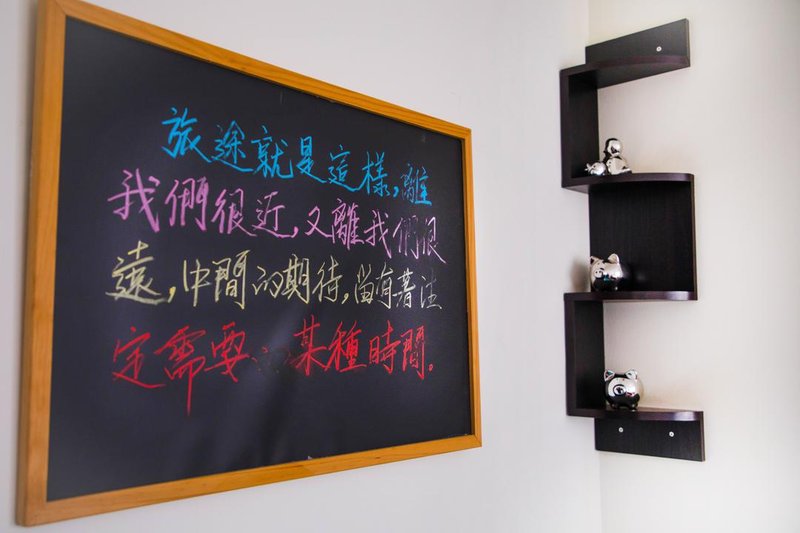 旅途就是這樣,離
我們很近,又離我們很
遠,中間的期待,當有著注
定需要 某種時間。